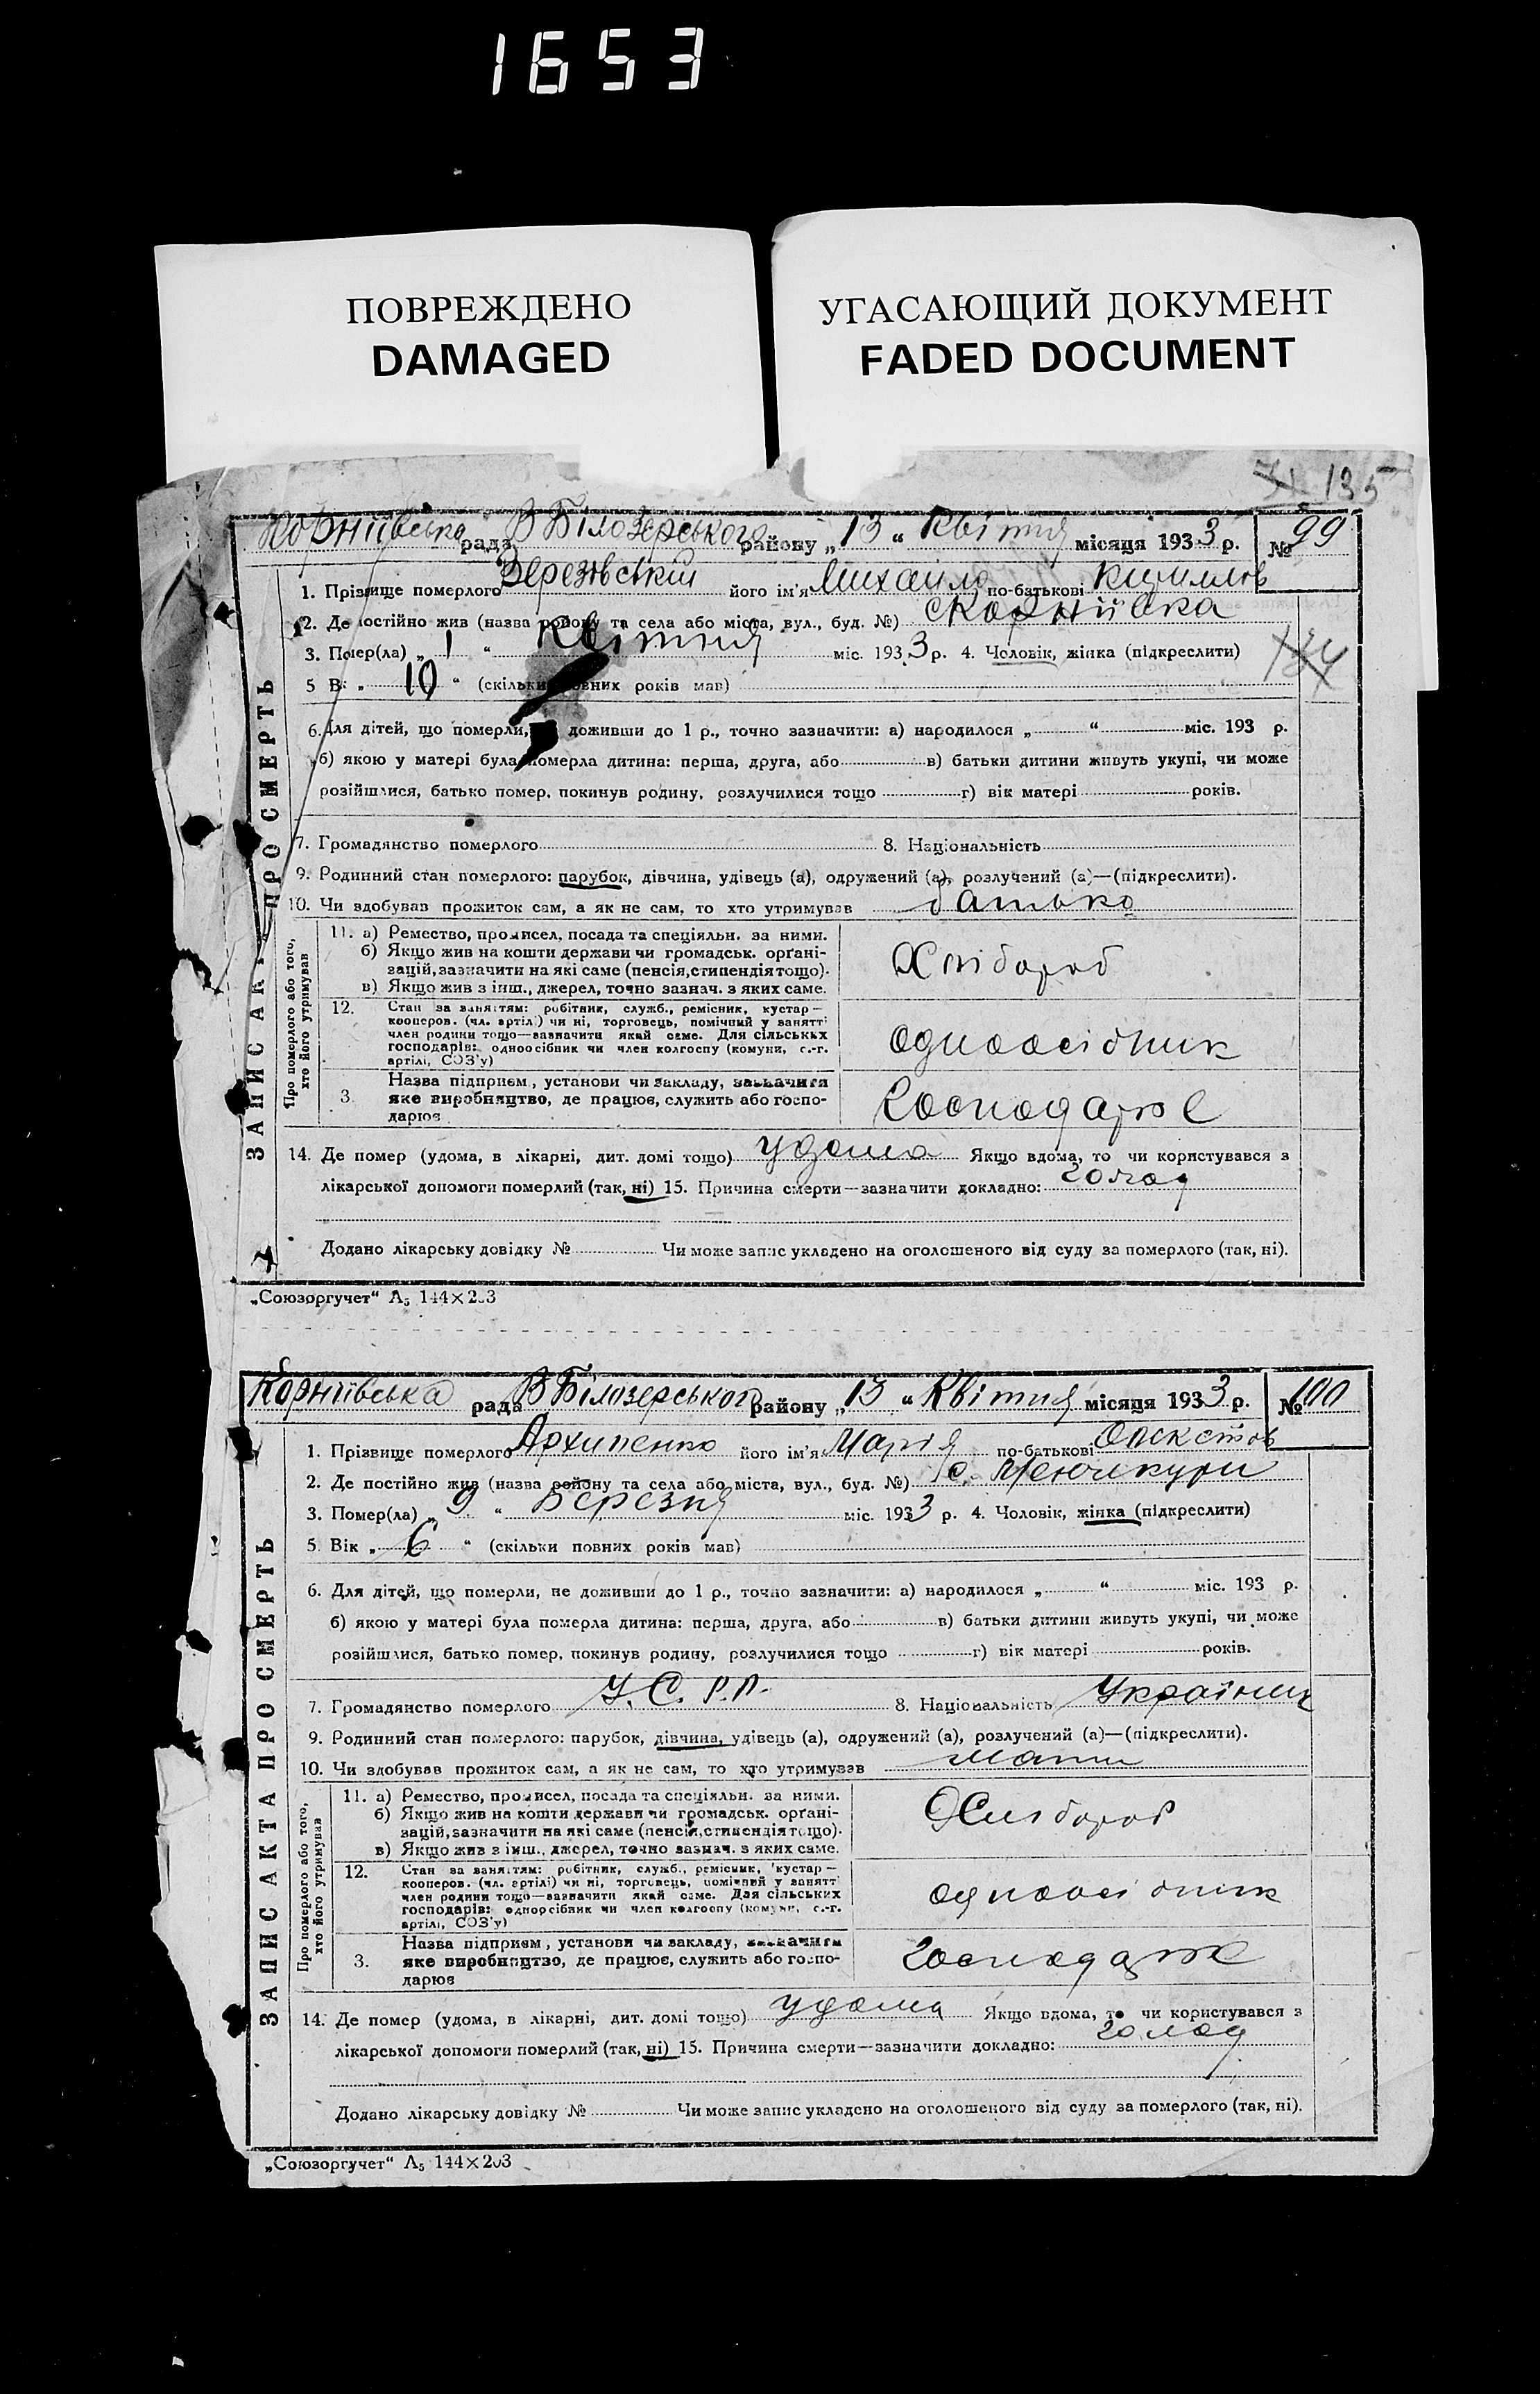 1653
ПОВРЕЖДЕНО
DAMAGED
УГАСАЮЩИЙ ДОКУМЕНТ
FADED DOCUMENT
135
Корніївська рада В Білозерського району „13“ Квітня місяця 1933 р. № 99
1. Прізвище померлого його ім'я Михайло по-батькові
2. Де постійно жив (назва району та села або міста, вул., буд. №) с Корніївка
3. Помер(ла) „1“ Квітня міс. 1933 р. 4. Чоловік, жінка (підкреслити)
5 В „10“ (скільки повних років мав)
6. Для дітей, що померли, доживши до 1 р., точно зазначити: а) народилося „ “ міс. 193 р.
б) якою у матері була померла дитина: перша, друга, або в) батьки дитини живуть укупі, чи може
розійшлися, батько помер, покинув родину, розлучилися тощо г) вік матері років.
7. Громадянство померлого 8. Національність
9. Родинний стан померлого: парубок, дівчина, удівець (а), одружений (а), розлучений (а)—(підкреслити).
10. Чи здобував прожиток сам, а як не сам, то хто утримував батько
ЗАПИС АКТА ПРО СМЕРТЬ
Про померлого або того, хто його утримував
11. а) Ремество, промисел, посада та спеціяльн. за ними.
б) Якщо жив на кошти держави чи громадськ. органі-
зацій, зазначити на які саме (пенсія, стипендія тощо).
в) Якщо жив з інш., джерел, точно зазнач. з яких саме.
Хлібороб
12. Стан за заняттям: робітник, служб., ремісник, кустар—
кооперов. (чл. артілі) чи ні, торговець, помічний у занятті
член родини тощо—зазначити який саме. Для сільських
господарів: одноосібник чи член колгоспу (комуни, с.-г.
артілі, СОЗ'у)
одноосібник
3. Назва підприєм., установи чи закладу, зазначити
яке виробництво, де працює, служить або госпо-
дарює
Господарює
14. Де помер (удома, в лікарні, дит. домі тощо) удома Якщо вдома, то чи користувався з
лікарської допомоги померлий (так, ні) 15. Причина смерти—зазначити докладно: голод
Додано лікарську довідку № Чи може запис укладено на оголошеного від суду за померлого (так, ні).
„Союзоргучет“ А₅ 144×203
Корніївська рада В Білозерського району „13“ Квітня місяця 1933 р. № 100
1. Прізвище померлого Архипенко його ім'я Марія по-батькові
2. Де постійно жив (назва району та села або міста, вул., буд. №) с. Менчикури
3. Помер(ла) „9“ Березня міс. 1933 р. 4. Чоловік, жінка (підкреслити)
5. Вік „6“ (скільки повних років мав)
6. Для дітей, що померли, не доживши до 1 р., точно зазначити: а) народилося „ “ міс. 193 р.
б) якою у матері була померла дитина: перша, друга, або в) батьки дитини живуть укупі, чи може
розійшлися, батько помер, покинув родину, розлучилися тощо г) вік матері років.
7. Громадянство померлого У.С.Р.Р. 8. Національність
9. Родинний стан померлого: парубок, дівчина, удівець (а), одружений (а), розлучений (а)—(підкреслити).
10. Чи здобував прожиток сам, а як не сам, то хто утримував мати
ЗАПИС АКТА ПРО СМЕРТЬ
Про померлого або того, хто його утримував
11. а) Ремество, промисел, посада та спеціяльн. за ними.
б) Якщо жив на кошти держави чи громадськ. органі-
зацій, зазначити на які саме (пенсія, стипендія тощо).
в) Якщо жив з інш., джерел, точно зазнач. з яких саме.
Хлібороб
12. Стан за заняттям: робітник, служб., ремісник, кустар—
кооперов. (чл. артілі) чи ні, торговець, помічний у занятті
член родини тощо—зазначити який саме. Для сільських
господарів: одноосібник чи член колгоспу (комуни, с.-г.
артілі, СОЗ'у)
одноосібник
3. Назва підприєм., установи чи закладу, зазначити
яке виробництво, де працює, служить або госпо-
дарює
Господарює
14. Де помер (удома, в лікарні, дит. домі тощо) удома Якщо вдома, то чи користувався з
лікарської допомоги померлий (так, ні) 15. Причина смерти—зазначити докладно: голод
Додано лікарську довідку № Чи може запис укладено на оголошеного від суду за померлого (так, ні).
„Союзоргучет“ А₅ 144×203